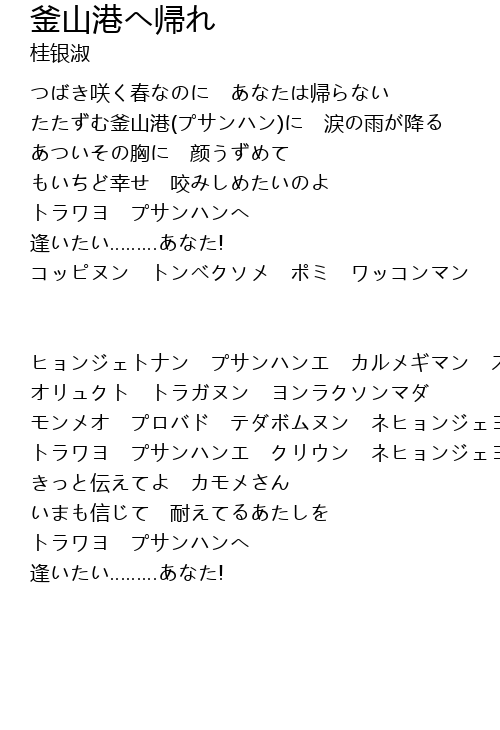 釜山港へ帰れ
桂银淑
つばき咲く春なのに　あなたは帰らない
たたずむ釜山港(プサンハン)に　涙の雨が降る
あついその胸に　颜うずめて
もいちど幸せ　咬みしめたいのよ
トラワヨ　プサンハンへ
逢いたい.........あなた!
コッピヌン　トンベクソメ　ポミ　ワッコンマン
ヒョンジェトナン　プサンハンエ　カルメギマン
オリュクト　トラガヌン　ヨンラクソンマダ
モンメオ　プロバド　テダボムヌン　ネヒョンジェヨ
トラワヨ　プサンハンエ　クリウン　ネヒョンジェヨ
きっと伝えてよ　カモメさん
いまも信じて　耐えてるあたしを
トラワヨ　プサンハンヘ
逢いたい.........あなた!